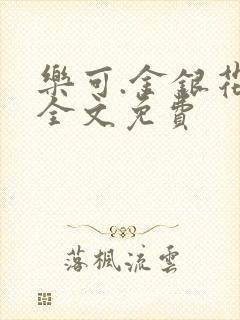 樂可.金銀花
全文免費
落楓流雲